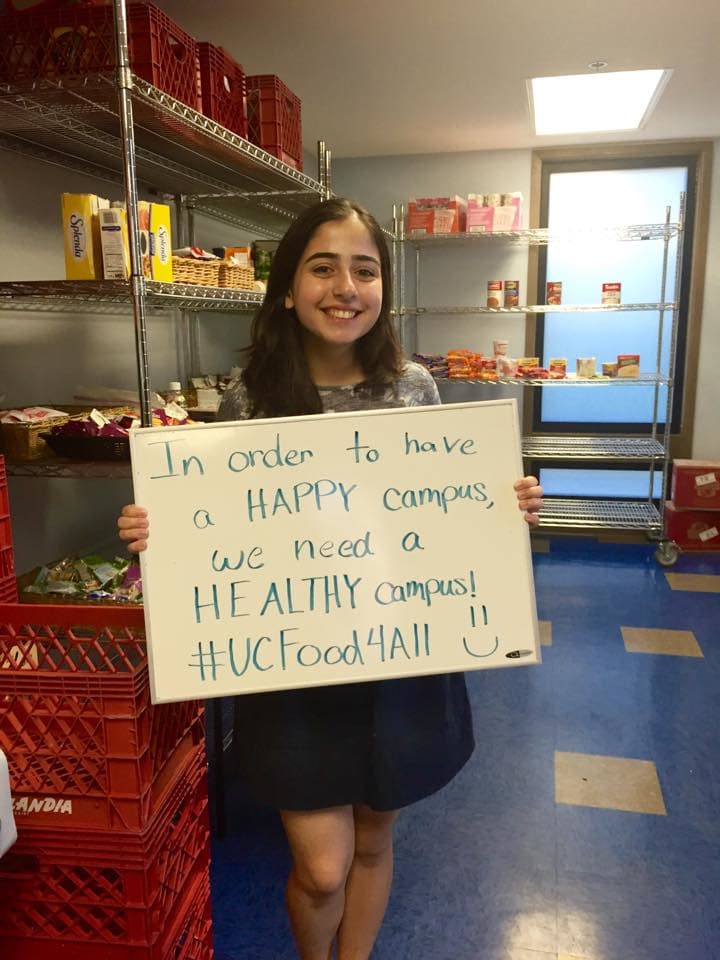 Splenda
Splenda
In order to have
a HAPPY campus,
we need a
HEALTHY campus!
#UCFood4All
LANDIA